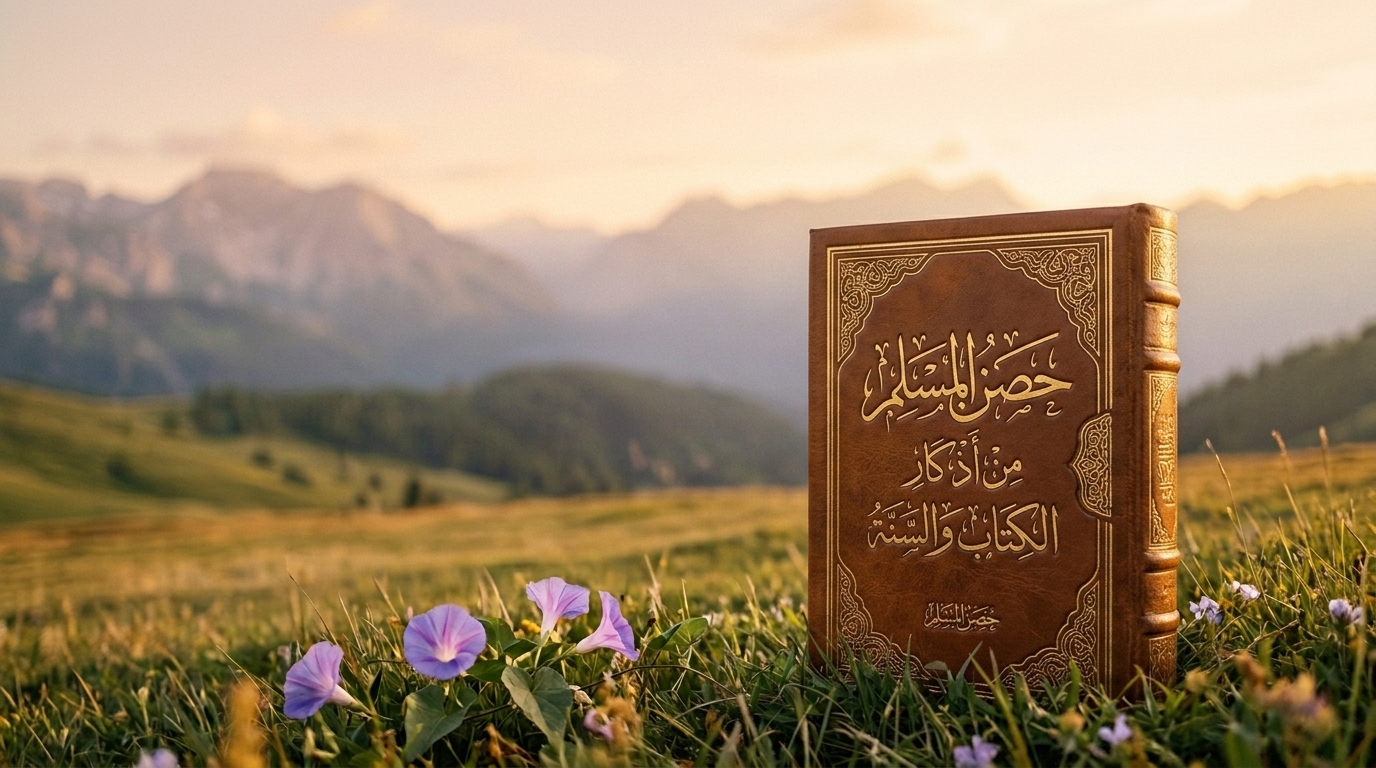 حصن المسلم
من أذكار
الكتاب والسنة
حصن المسلم